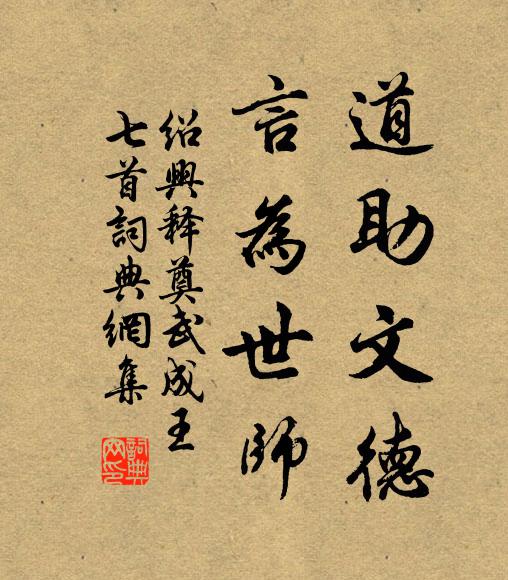 道助文德
言為世師
紹興释奠武成王
七首詞典網集
詞典网印